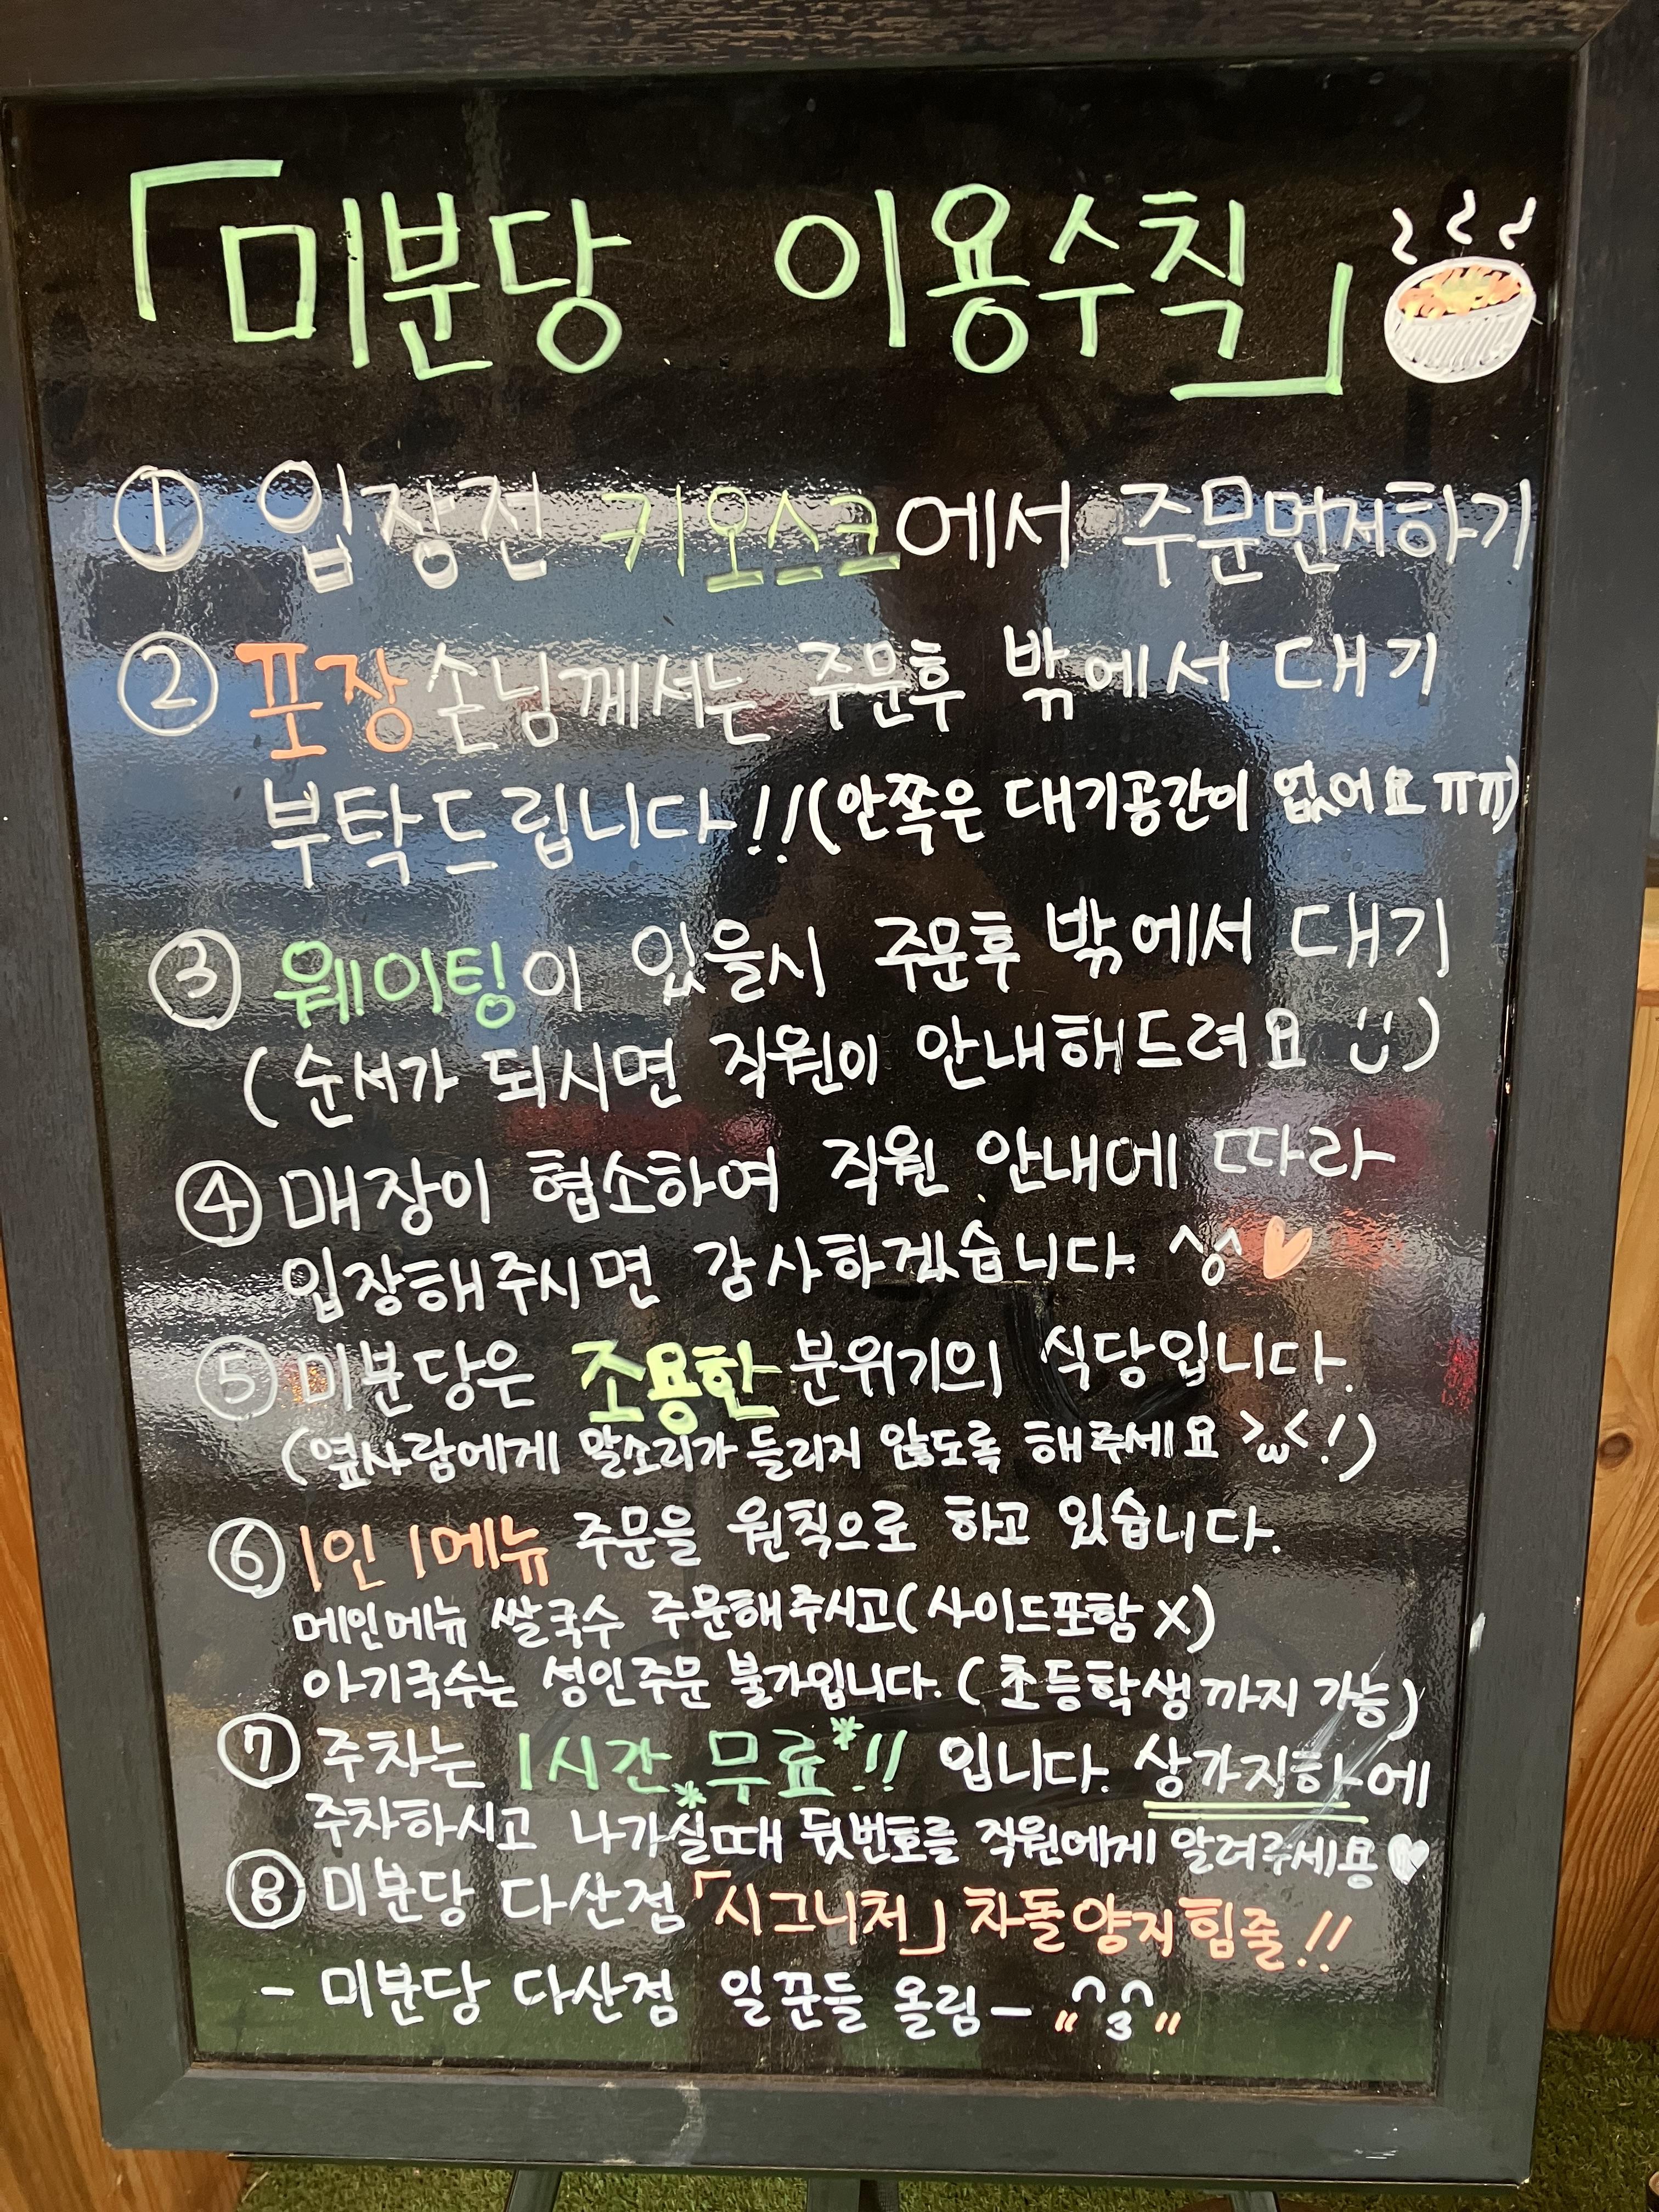 「미분당 이용수칙」
① 입장전 키오스크에서 주문먼저하기
② 포장손님께서는 주문후 밖에서 대기
부탁드립니다!!(안쪽은 대기공간이 없어요ㅠㅠ)
③ 웨이팅이 있을시 주문후 밖에서 대기
(순서가 되시면 직원이 안내해드려요 :))
④ 매장이 협소하여 직원 안내에 따라
입장해주시면 감사하겠습니다. ^^♥
⑤ 미분당은 조용한 분위기의 식당입니다.
(옆사람에게 말소리가 들리지 않도록 해주세요 >ω<!)
⑥ 1인 1메뉴 주문을 원칙으로 하고 있습니다.
메인메뉴 쌀국수 주문해주시고(사이드포함X)
아기국수는 성인주문 불가입니다.(초등학생까지 가능)
⑦ 주차는 1시간 무료*!! 입니다. 상가지하에
주차하시고 나가실때 뒷번호를 직원에게 알려주세용♥
⑧ 미분당 다산점「시그니처」차돌양지힘줄!!
- 미분당 다산점 일꾼들 올림 - "^3^"